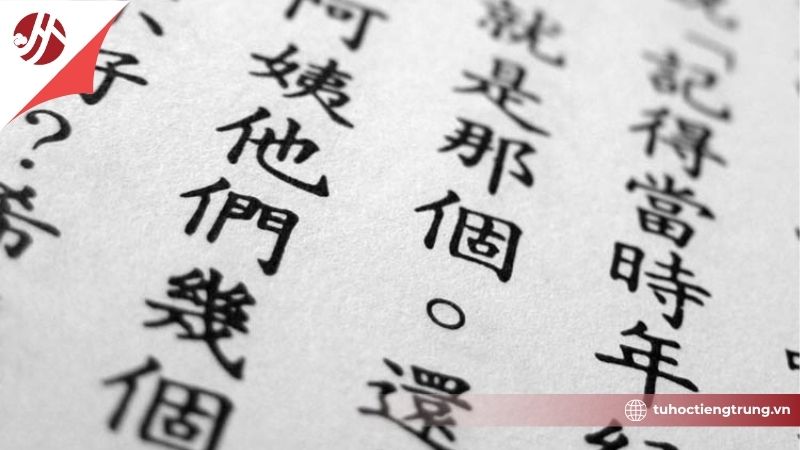 「記得當時年
就是那個。還
阿姨他們幾個
子？希
tuhoctiengtrung.vn